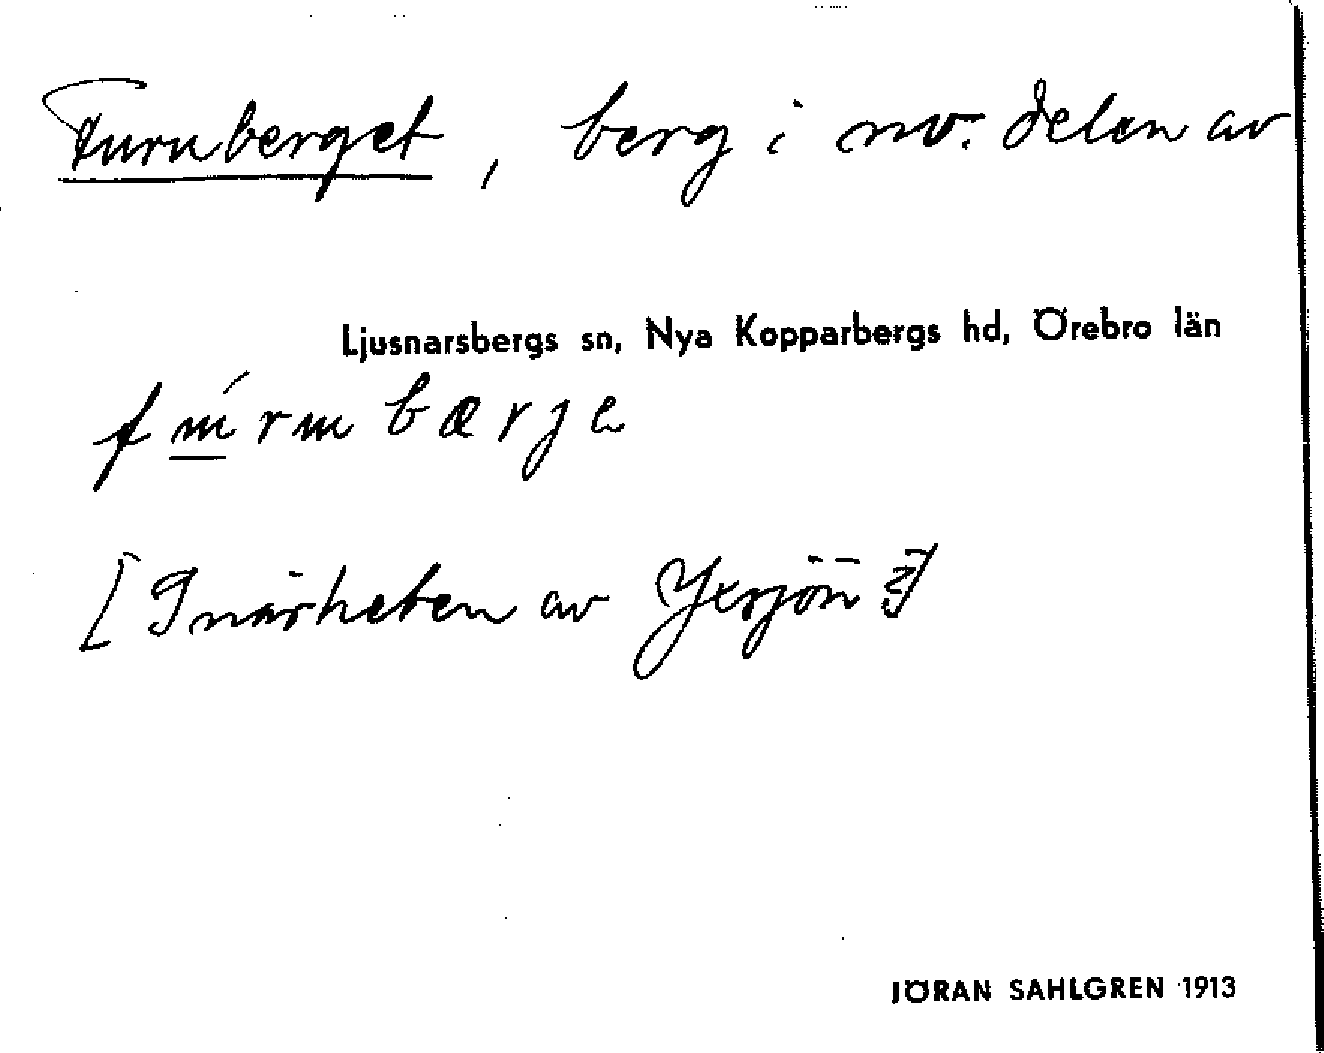 Furnberget, berg i nv. delen av
Ljusnarsbergs sn, Nya Kopparbergs hd, Örebro län
bærje
[I närheten av Yxsjön]
JÖRAN SAHLGREN 1913